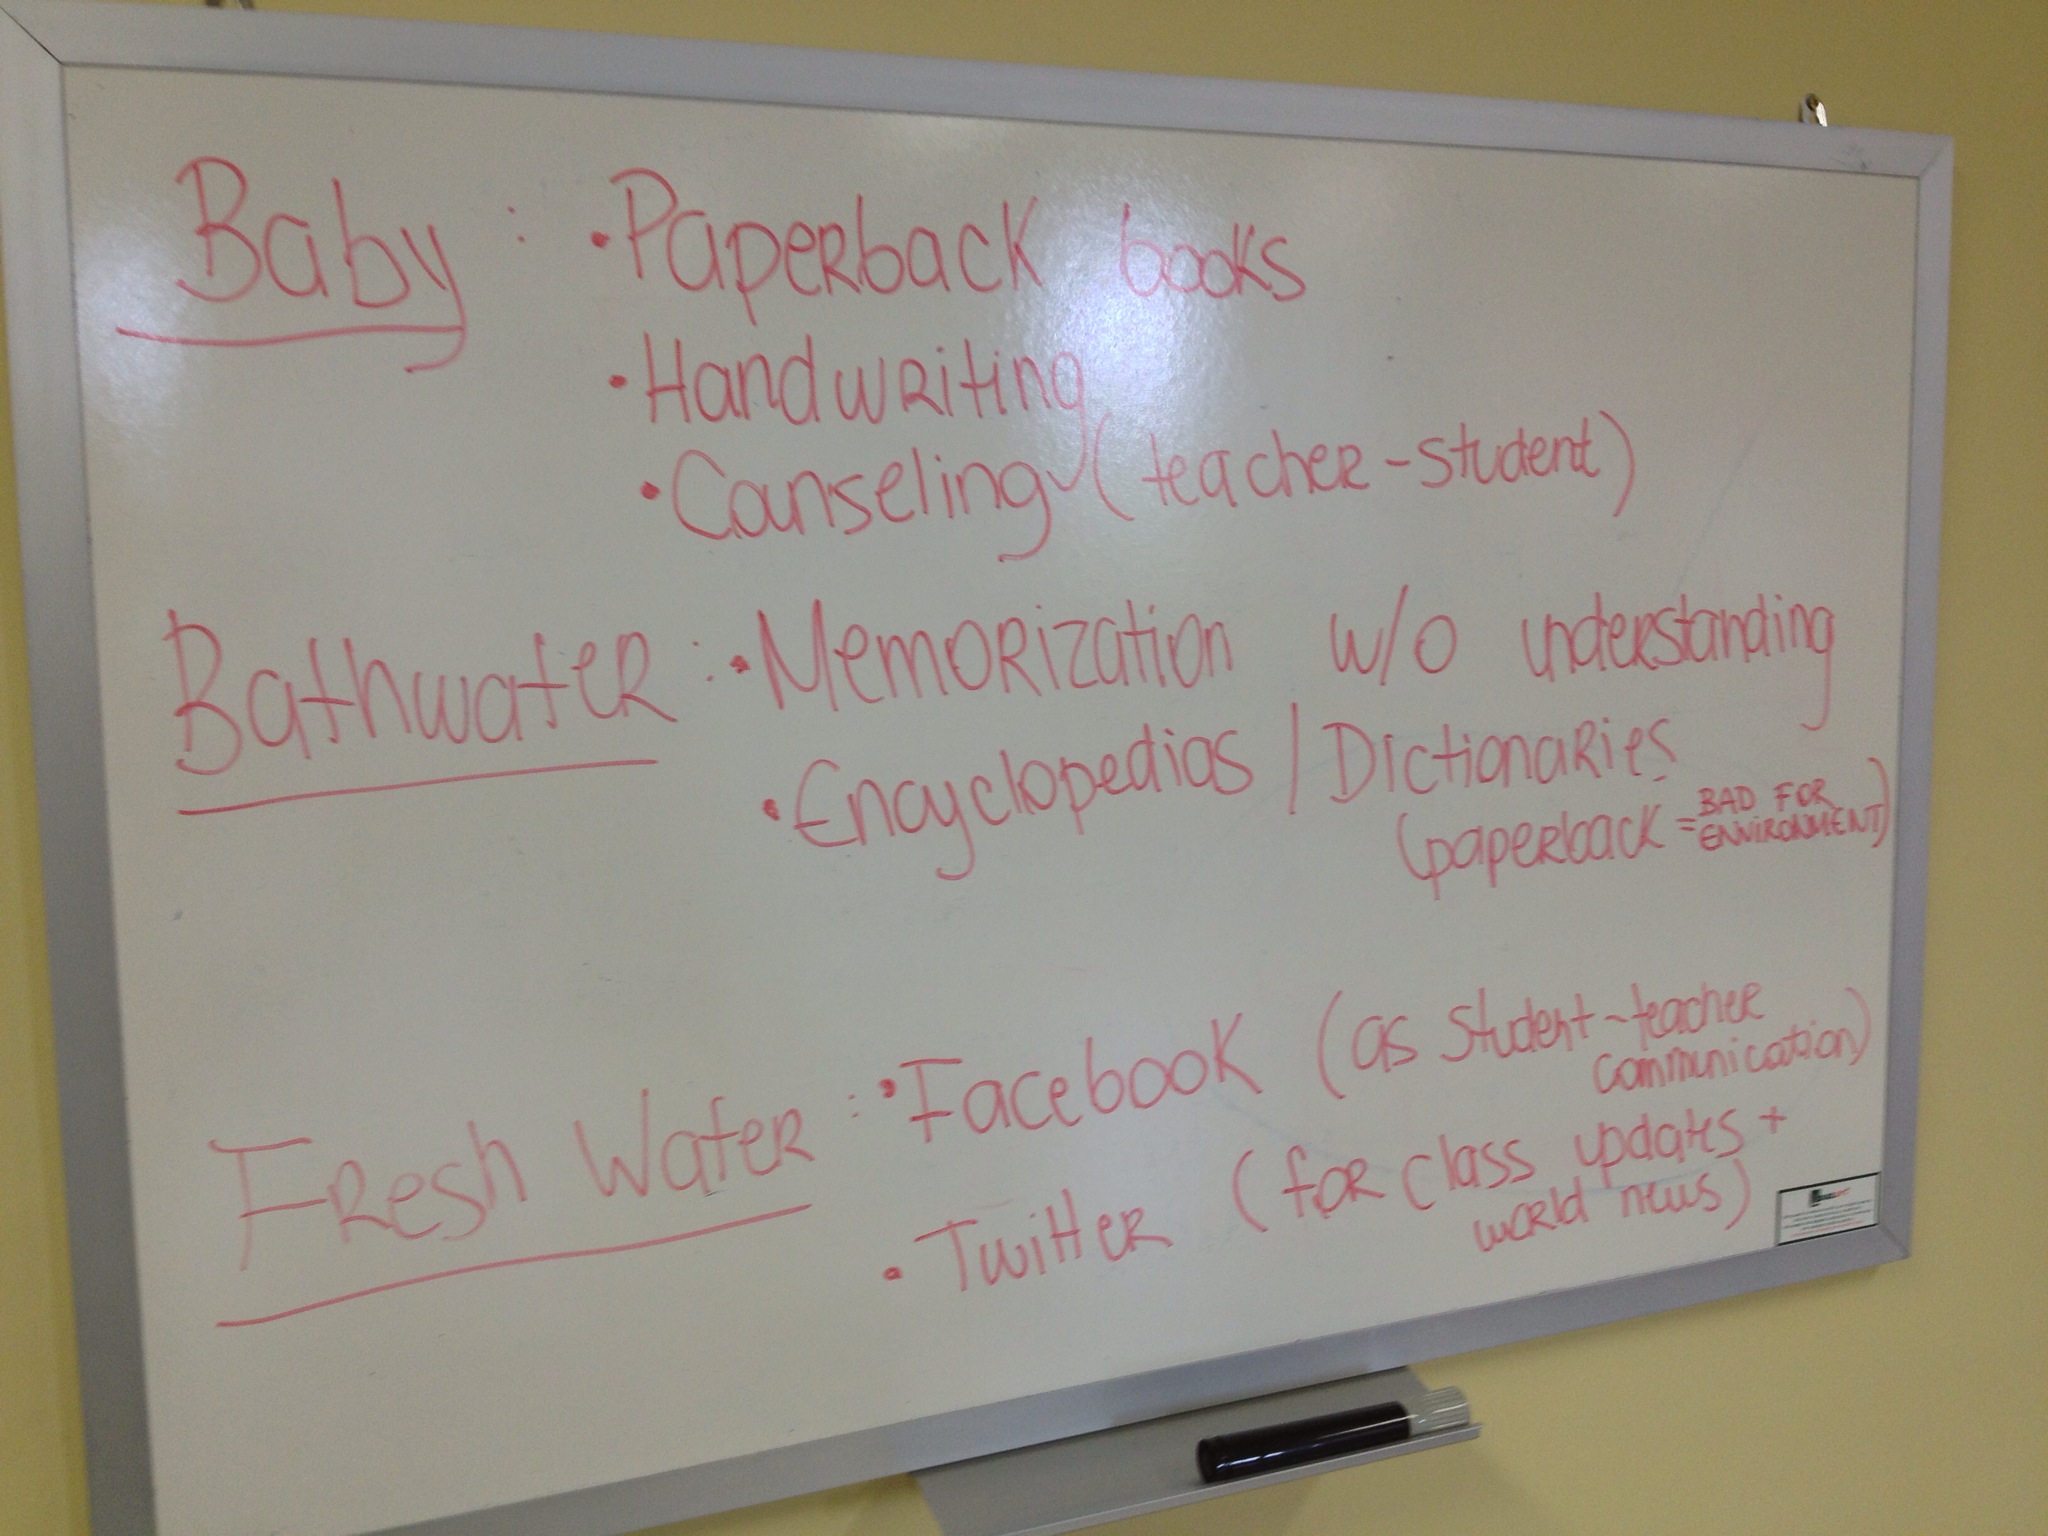 Baby : • Paperback books
• Handwriting
• Counseling (teacher-student)
Bathwater : • Memorization w/o understanding
• Encyclopedias / Dictionaries
(paperback = BAD FOR
ENVIRONMENT)
Fresh Water : • Facebook (as student-teacher
communication)
• Twitter (for class updates +
world news)